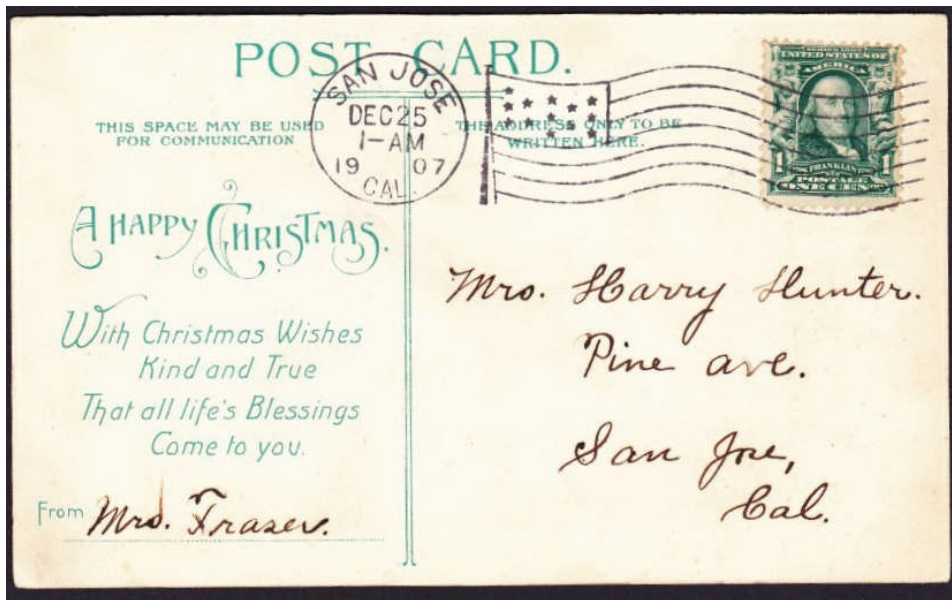 POST CARD.
SAN JOSE
DEC 25
1-AM
19 07
CAL.
SERIES 1902
UNITED STATES OF
AMERICA
1 FRANKLIN 1
POSTAGE
ONE CENT
THIS SPACE MAY BE USED
FOR COMMUNICATION
THE ADDRESS ONLY TO BE
WRITTEN HERE.
A HAPPY CHRISTMAS.
With Christmas Wishes
Kind and True
That all life's Blessings
Come to you.
From Mrs. Fraser.
Mrs. Harry Hunter.
Pine ave.
San Jose,
Cal.